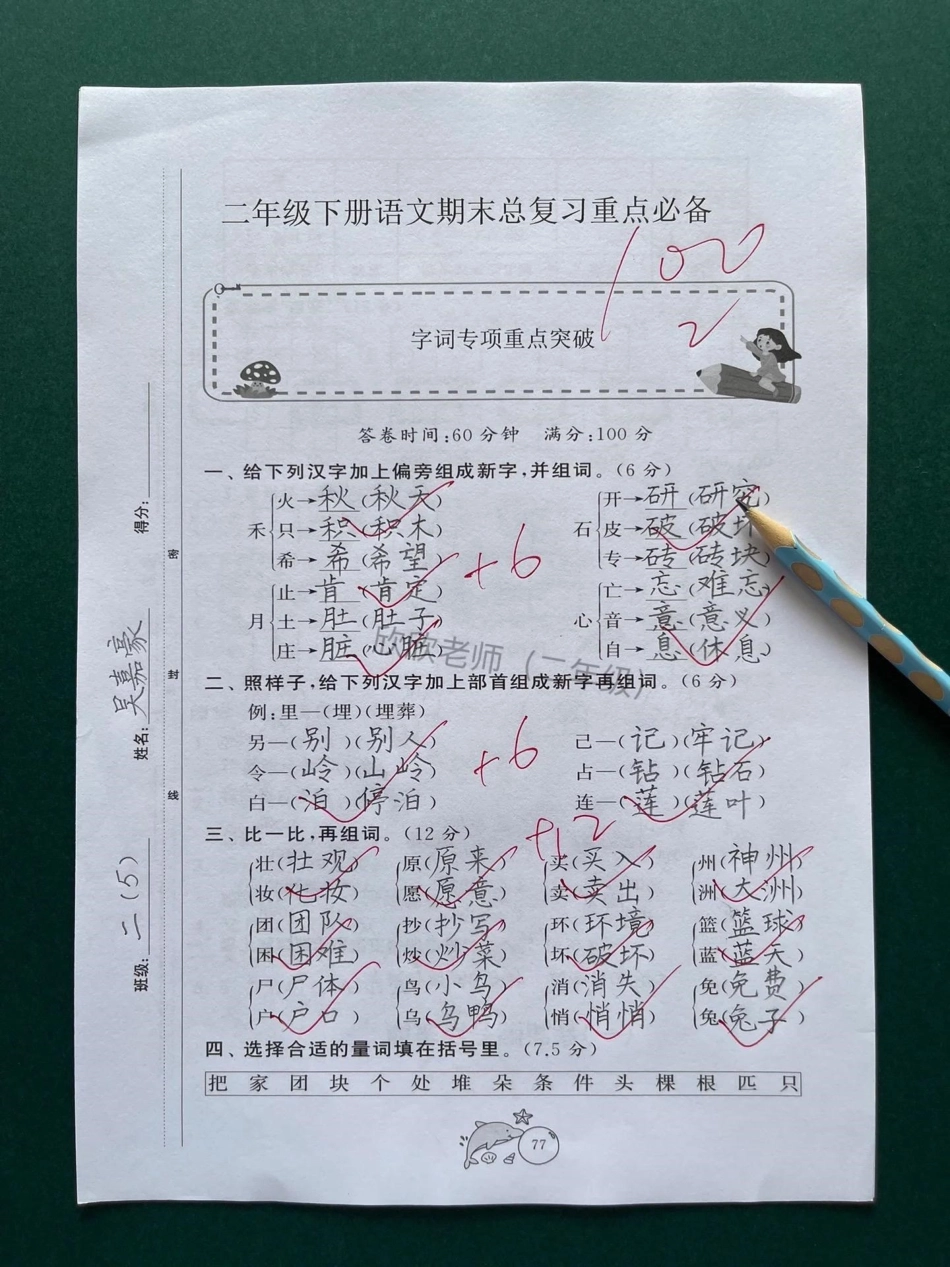 二年级下册语文期末总复习重点必备
100
2
字词专项重点突破
答卷时间:60分钟 满分:100分
一、给下列汉字加上偏旁组成新字,并组词。(6分)
禾 火→秋(秋天) 石 开→研(研究)
只→积(积木) 皮→破(破坏)
希→希(希望) 专→砖(砖块)
+6
月 止→肯(肯定) 心 亡→忘(难忘)
土→肚(肚子) 音→意(意义)
庄→脏(心脏) 自→息(休息)
欣欣老师(二年级)
二、照样子,给下列汉字加上部首组成新字再组词。(6分)
例:里—(埋)(埋葬)
另—(别)(别人) 己—(记)(牢记)
令—(岭)(山岭) +6 占—(钻)(钻石)
白—(泊)(停泊) 连—(莲)(莲叶)
三、比一比,再组词。(12分) +12
壮(壮观) 原(原来) 买(买入) 州(神州)
妆(化妆) 愿(愿意) 卖(卖出) 洲(大洲)
团(团队) 抄(抄写) 环(环境) 篮(篮球)
困(困难) 炒(炒菜) 坏(破坏) 蓝(蓝天)
尸(尸体) 鸟(小鸟) 消(消失) 免(免费)
户(户口) 乌(乌鸭) 悄(悄悄) 兔(兔子)
四、选择合适的量词填在括号里。(7.5分)
把 家 团 块 个 处 堆 朵 条 件 头 棵 根 匹 只
77
班级: 二(5) 姓名: 吴嘉豪 得分:
密 封 线